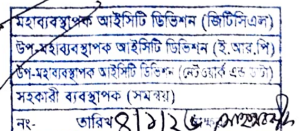 মহাব্যবস্থাপক আইসিটি ডিভিশন (জিটিসিএল)
উপ-মহাব্যবস্থাপক আইসিটি ডিভিশন (ই.আর.পি)
উপ-মহাব্যবস্থাপক আইসিটি ডিভিশন (নেটওয়ার্ক এন্ড ডাটা)
সহকারী ব্যবস্থাপক (সমন্বয়)
নং- তারিখ